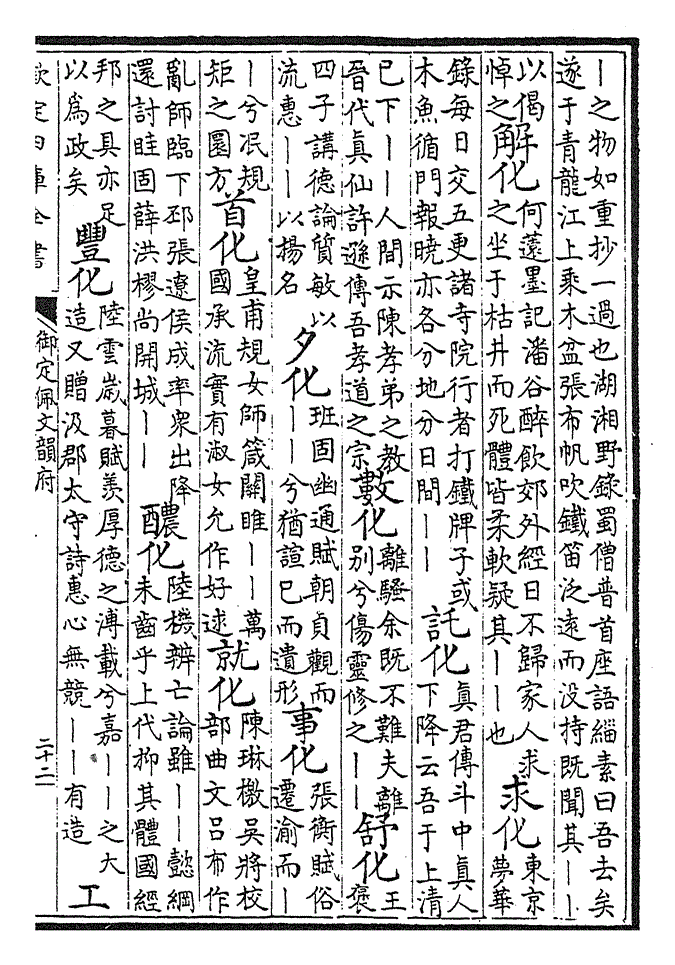 丨之物如重抄一過也湖湘野錄蜀僧普首座語緇素曰吾去矣
遂于青龍江上乘木盆張布帆吹鐵笛泛遠而没持既聞其丨丨
以偈
悼之
解化
何薳墨記潘谷醉飲郊外經日不歸家人求
之坐于枯井而死體皆柔軟疑其丨丨也
求化
東京
夢華
錄每日交五更諸寺院行者打鐵牌子或
木魚循門報曉亦各分地分日間丨丨
託化
真君傳斗中真人
下降云吾于上清
已下丨丨人間示陳孝弟之教
晉代真仙許遜傳吾孝道之宗
數化
離騷余既不難夫離
别兮傷靈修之丨丨
舒化
王
褒
四子講德論質敏以
流惠丨丨以揚名
夕化
班固幽通賦朝貞觀而
丨丨兮猶諠已而遺形
事化
張衡賦俗
遷渝而丨
丨兮泯規
矩之圜方
首化
皇甫規女師箴關雎丨丨萬
國承流實有淑女允作好逑
就化
陳琳檄吳將校
部曲文吕布作
亂師臨下邳張遼侯成率衆出降
還討眭固薛洪樛尚開城丨丨
醲化
陸機辨亡論雖丨丨懿綱
未齒乎上代抑其體國經
邦之具亦足
以為政矣
豐化
陸雲歲暮賦羨厚德之溥載兮嘉丨丨之大
造又贈汲郡太守詩惠心無競丨丨有造
工
欽定四庫全書
御定佩文韻府
二十二